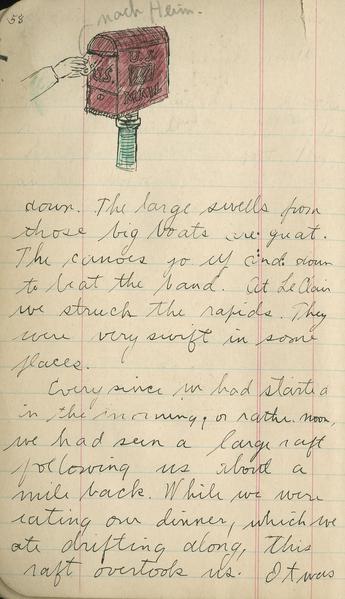 58
nach Heim.
U.S.
U.S
MAIL
down. The large swells from
those big boats are great.
The canoes go up and down
to beat the band. At Le Clair
we struck the rapids. They
were very swift in some
places.
Every since we had started
in the morning, or rather noon,
we had seen a large raft
following us about a
mile back. While we were
eating our dinner, which we
ate drifting along, this
raft overtook us. It was